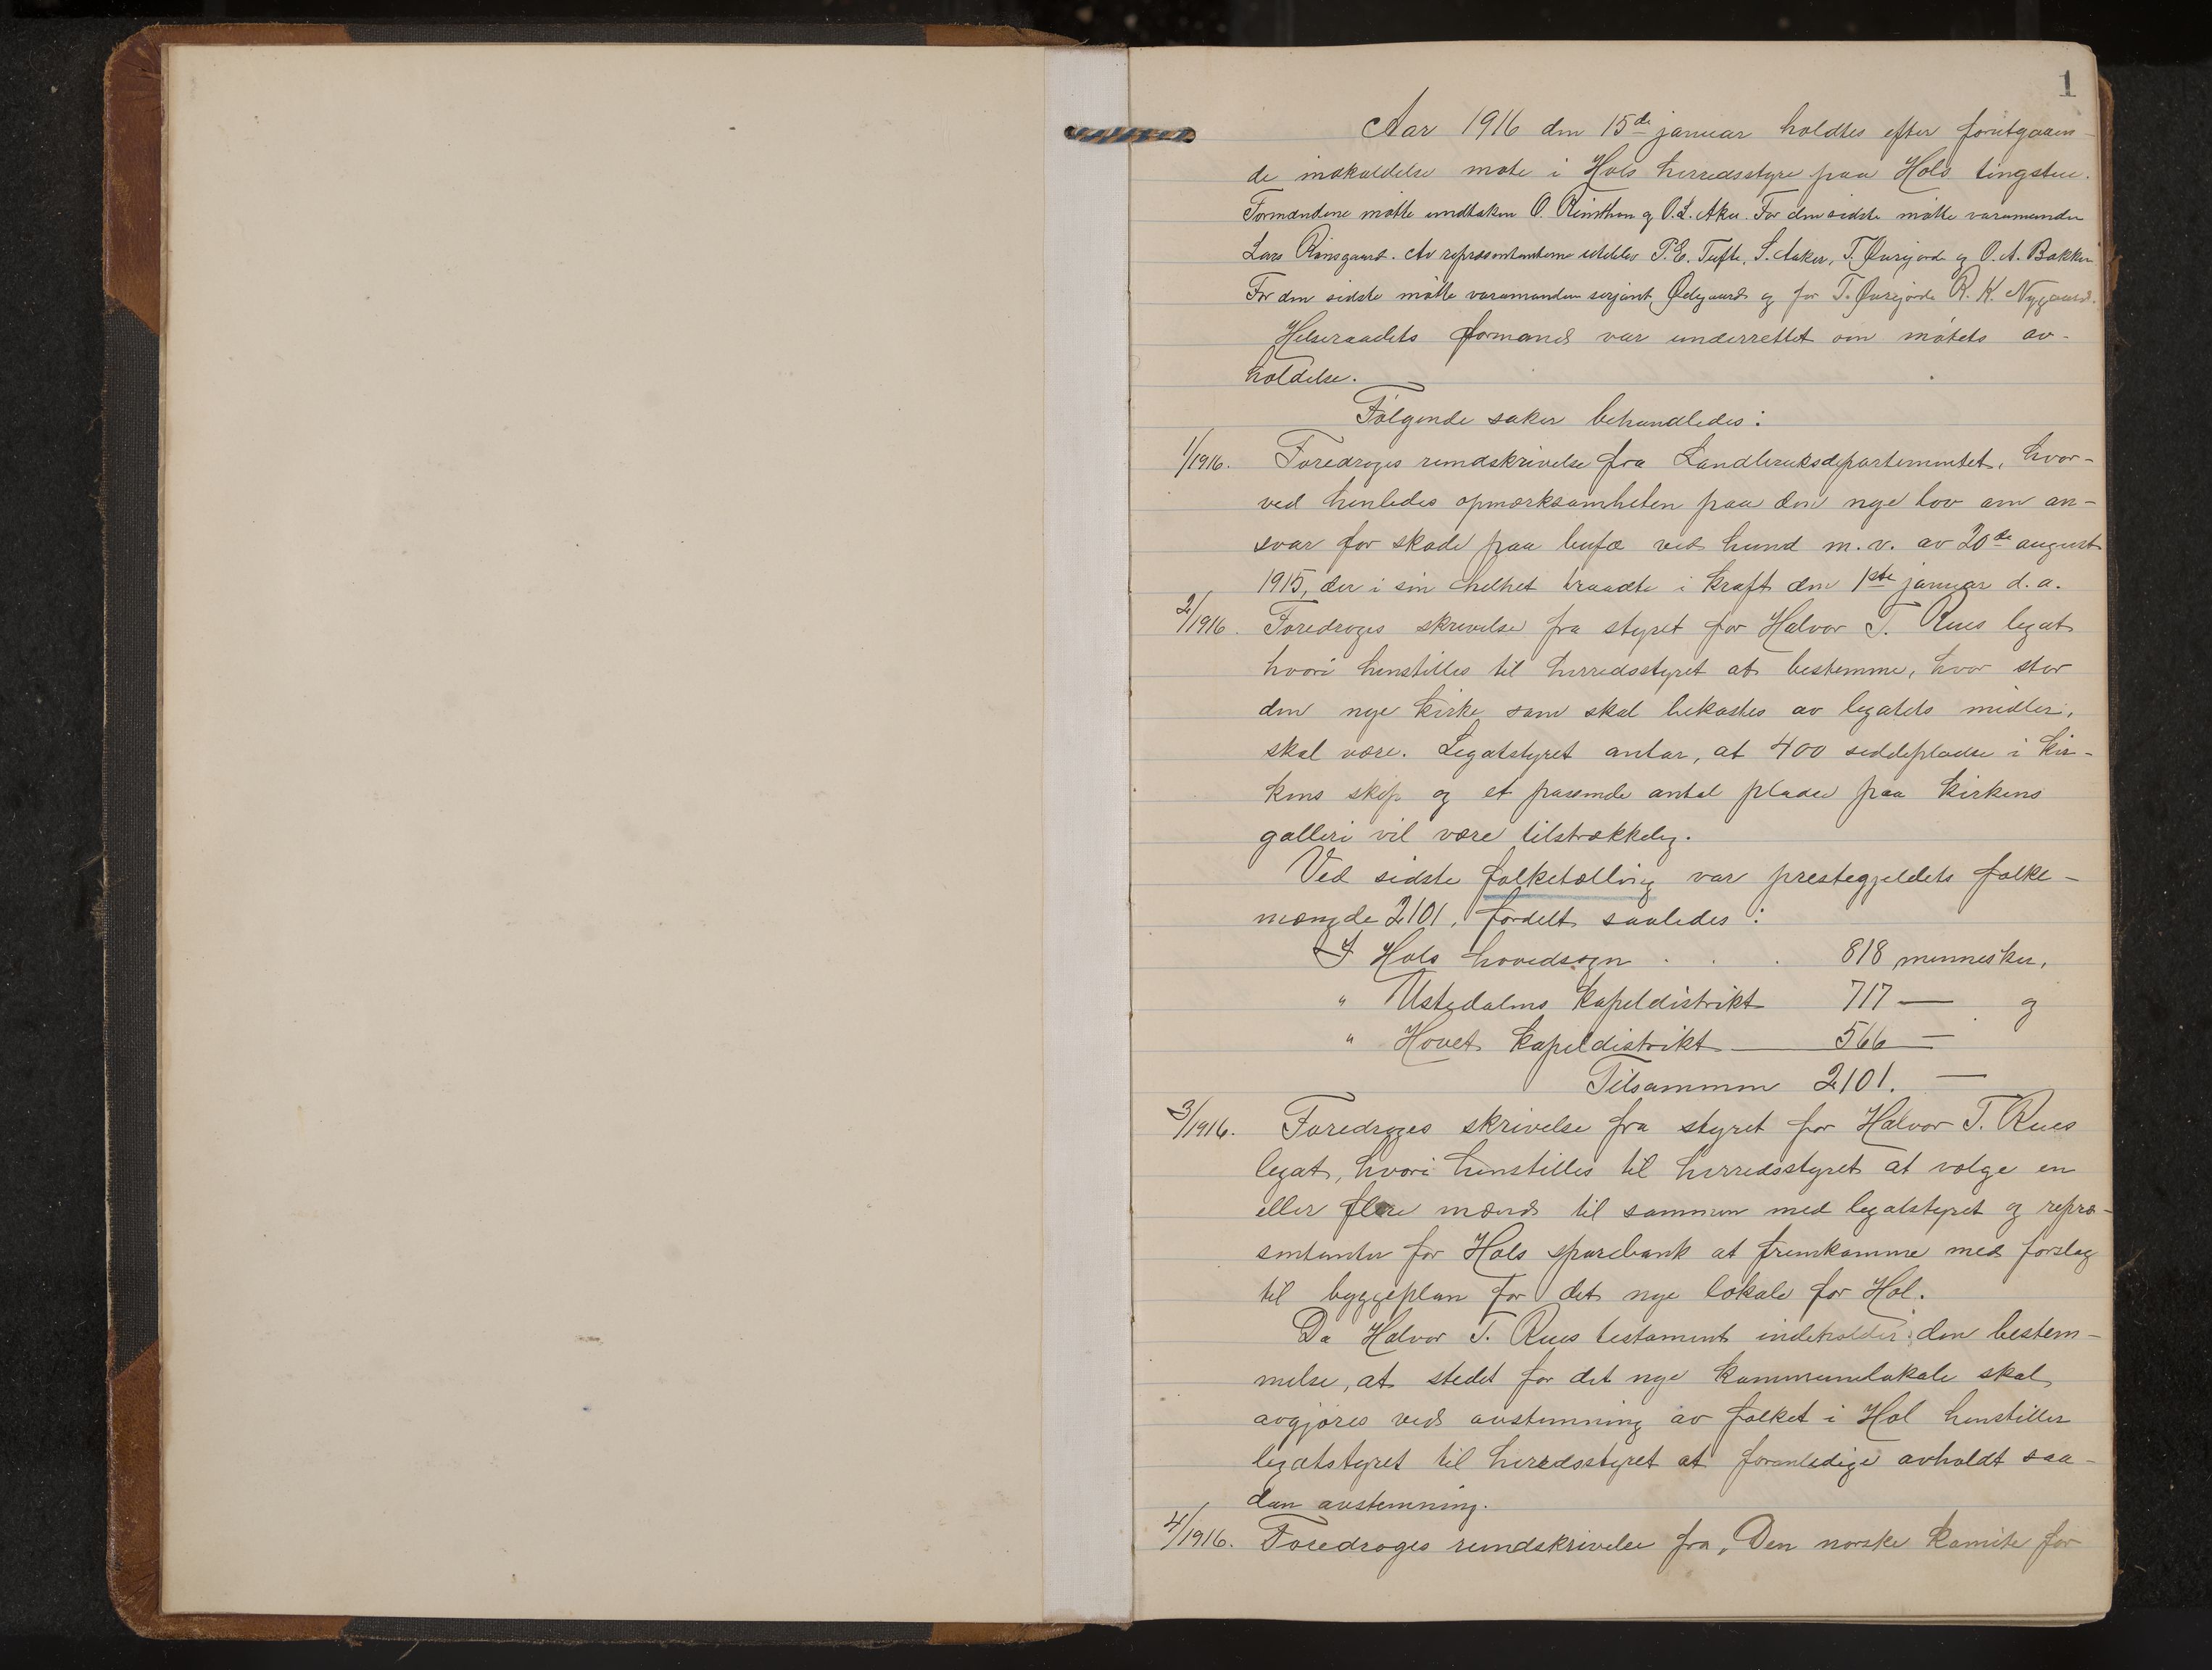 1
Aar 1916 den 15de januar holdtes efter forutgaaen-
de indkaldelse møte i Hols herredsstyre paa Hols tingstue.
Formændene møtte undtaken O. Reinton og O. L. Aker. For den sidste møtte varamanden
Lars Rinsgaard. Av repræsentanterne uteblev P. E. Tufte, S. Aaker, T. Øvrejorde og O. A. Bakken
For den sidste møtte varamanden serjant Ødegaard og for T. Øvrejorde R. K. Nygaard.
Helseraadets formand var underrettet om møtets av-
holdelse.
Følgende saker behandledes:
1/1916. Foredroges rundskrivelse fra Landbruksdepartementet, hvor-
ved henledes opmerksamheten paa den nye lov om an-
svar for skade paa bufæ ved hund m.v. av 20de august
1915, der i sin helhet traadte i kraft den 1ste januar d.a.
2/1916. Foredroges skrivelse fra styret for Halvor T. Rues legat
hvori henstilles til herredsstyret at bestemme, hvor stor
den nye kirke som skal bekostes av legatets midler,
skal være. Legatstyret antar, at 400 siddepladse i kir-
kens skip og et passende antal pladse paa kirkens
galleri vil være tilstrækkelig.
Ved sidste folketælling var prestegjeldets folke-
mængde 2101, fordelt saaledes:
I Hols hovedsogn . . . 818 mennesker,
" Ustedalens kapeldistrikt 717 — og
" Hovet kapeldistrikt 566 —
Tilsammen 2101. —
3/1916. Foredroges skrivelse fra styret for Halvor T. Rues
legat, hvori henstilles til herredsstyret at vælge en
eller flere mænd til sammen med legatstyret og repræ-
sentanter for Hols sparebank at fremkomme med forslag
til byggeplan for det nye lokale for Hol.
Da Halvor T. Rues testament indeholder den bestem-
melse, at stedet for det nye kommunelokale skal
avgjøres ved avstemning av folket i Hol henstiller
legatstyret til herredsstyret at foranledige avholdt saa-
dan avstemning.
4/1916. Foredroges rundskrivelse fra „Den norske komite for